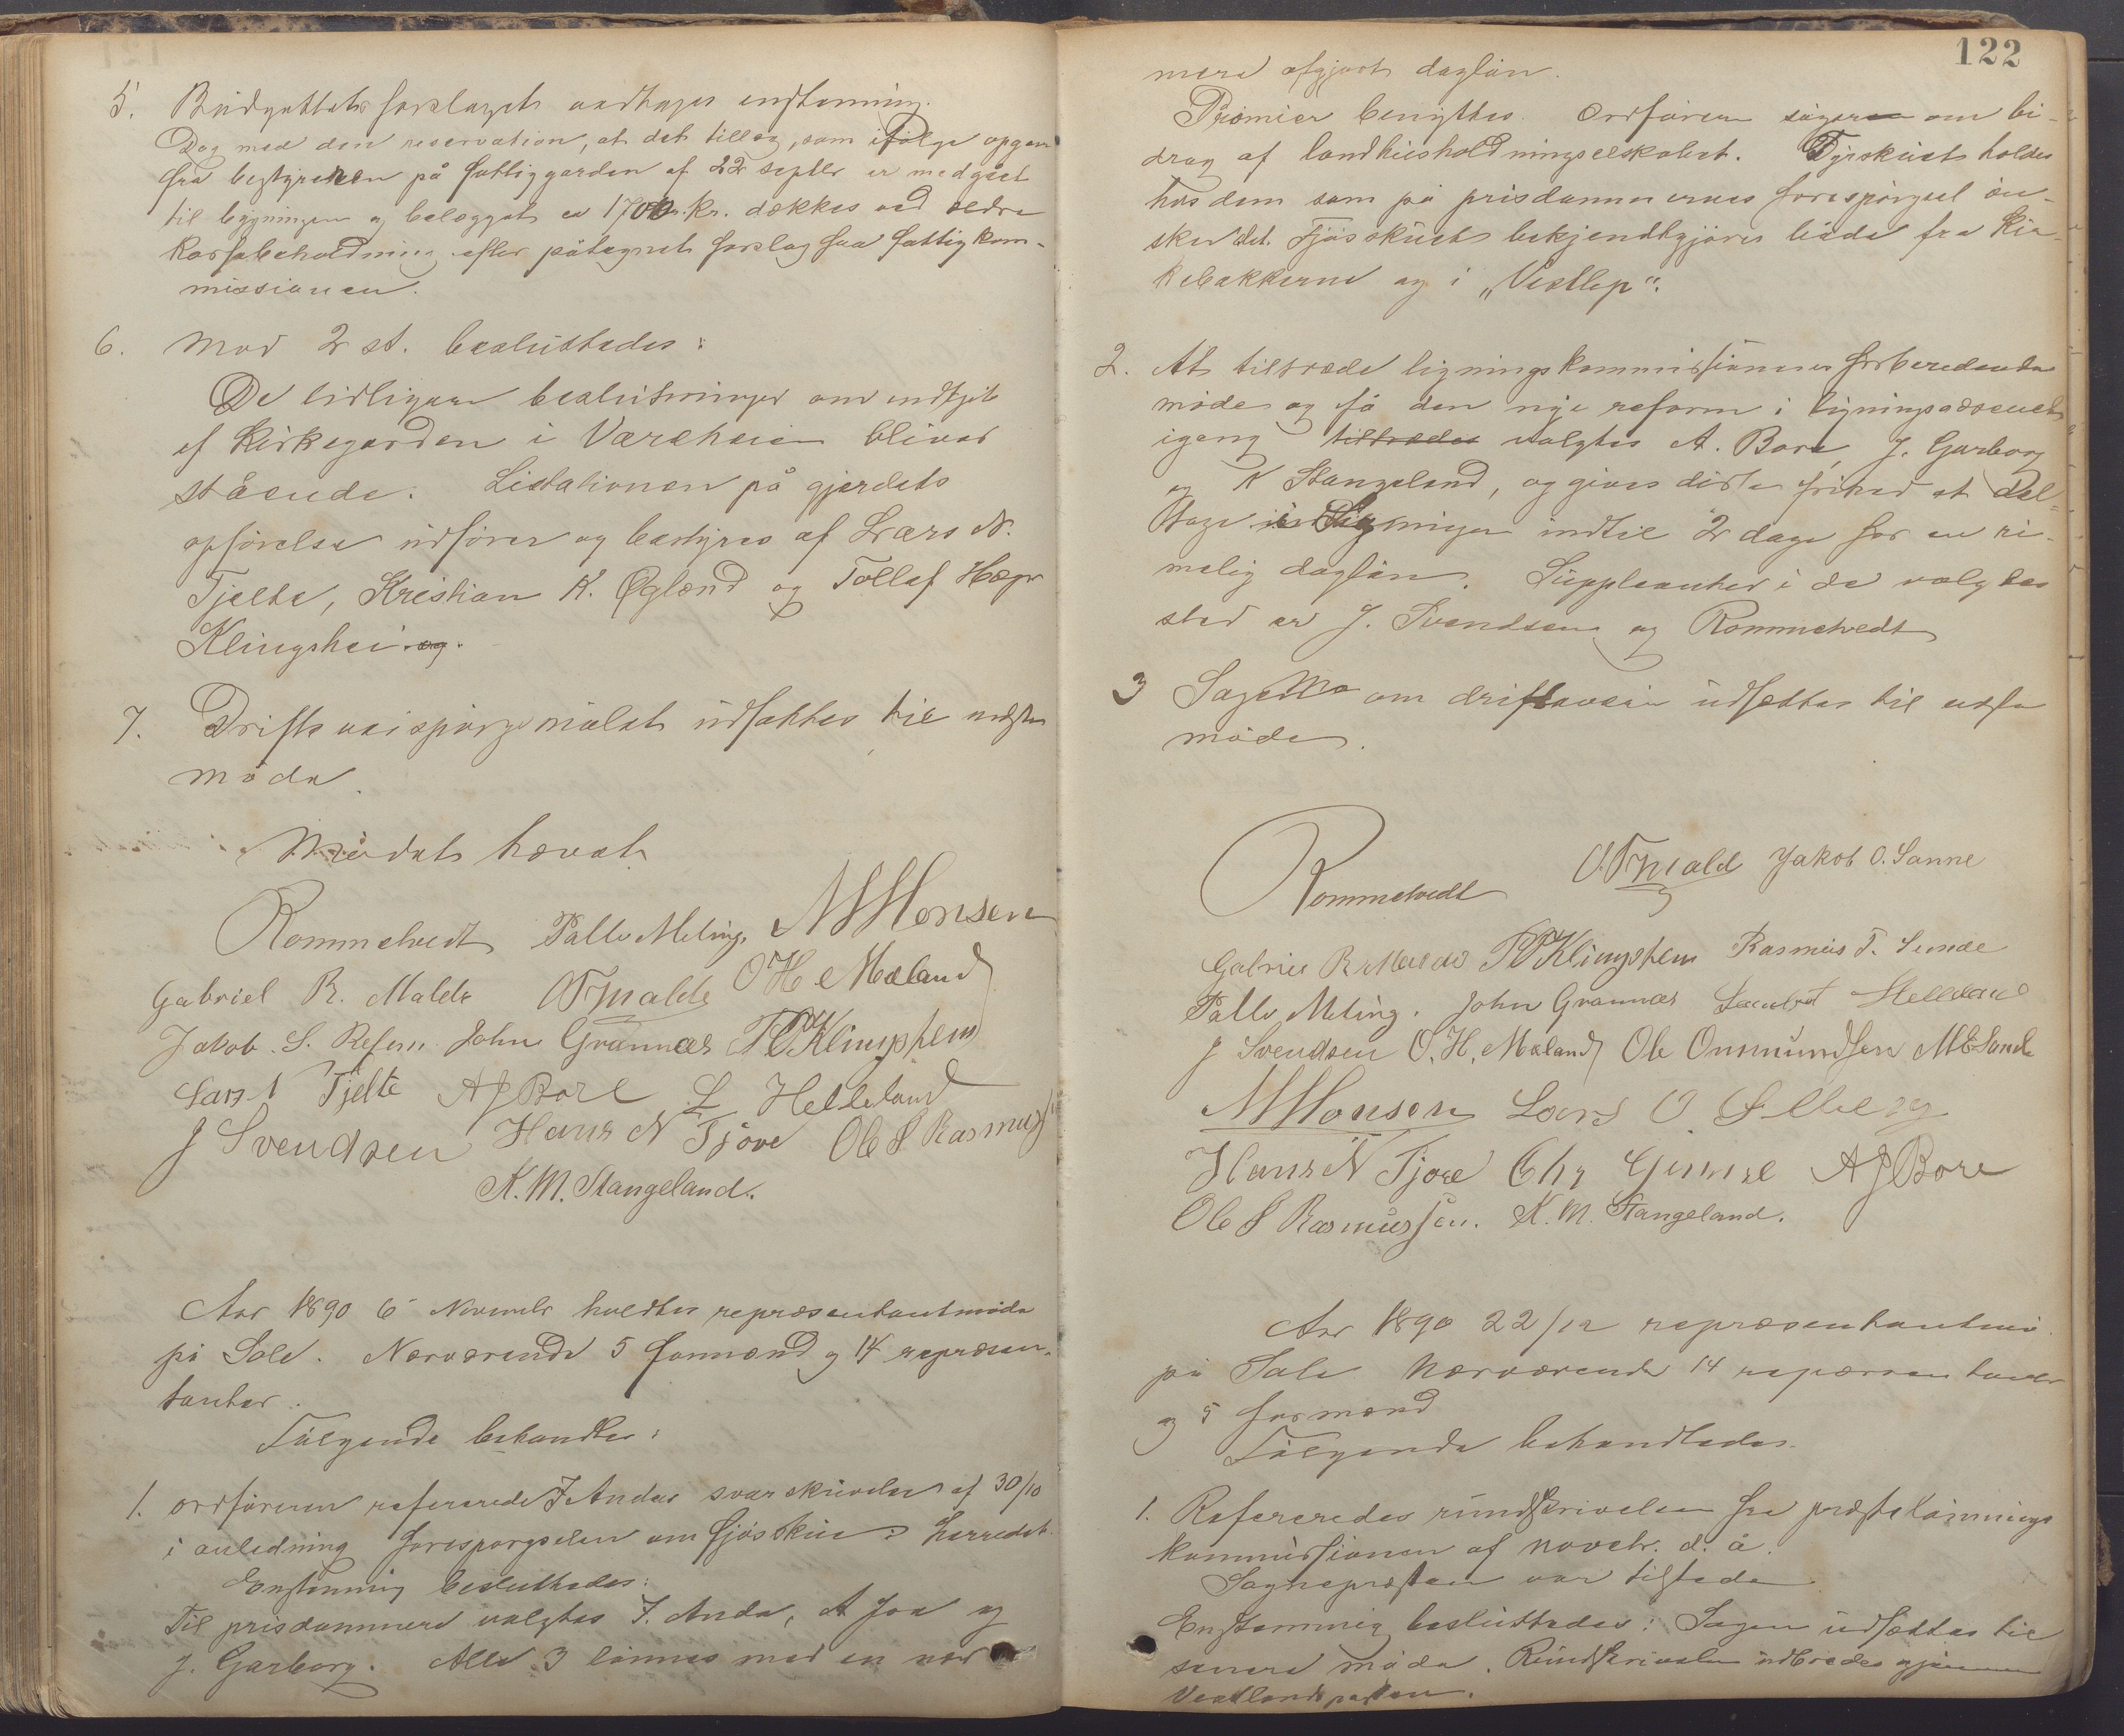 5. Budgettets forslaget vedtages enstemmig.
Dog med den reservation, at det tillæg, som ifølge opgave
fra bestyreren på fattiggarden af 22 septbr er medgået
til bygningen og belægget ca 1700 kr. dækkes ved ældre
kassabeholdning efter påtegnet forslag fra fattigkom-
missionen.
6. Mod 2 st. besluttedes:
De tidligere beslutninger om indkjøb
af Kirkegarden i Varehaien bliver
stående. Licitationen på gjerdets
opførelse udføres og bestyres af Lars N.
Tjelta, Kristian K. Øgland og Tollef
Klingshei og.
7. Drifts veispørgsmålet udsættes til næste
møde.
Mødet hævet
Rommetvedt Palle Meling. M Monsen
Gabriel R. Malde O T Malde O H Mæland
Jakob S. Refsn. John Grannæs T O Klingshem
Lars N Tjelte A J Bore L Helleland
J Svendsen Hans N Tjore Ole S Rasmuss
K. M. Stangeland.
Aar 1890 6 Novembr holdtes repræsentantmøde
på Sole. Nærværende 5 formænd og 14 repræsen-
tanter.
Følgende behandles:
1. ordføreren refererede J Andas svarskrivelse af 30/10
i anledning forespørgselen om fjøsskue i herredet.
Enstemmig besluttedes:
Til prisdommere valgtes J. Anda, A Joa og
J. Garborg. Alle 3 lønnes med en nær
122
mere afgjort dagløn.
Præmier benyttes. Ordføreren søger om bi-
drag af landhusholdningselskabet. Dyrskuet holdes
hos dem som på prisdommernes forespørgsel øn-
sker det. Fjøsskuet bekjendtgjøres både fra Kir-
kebakkerne og i „Vestlp".
2. At tiltræde ligningskommissionens forberedende
møde og få den nye reform i ligningsvæsenet
igang tiltrædes valgtes A. Bore, J. Garborg
og K Stangeland, og gives disse frihed at del-
tage i Ligningen indtil 2 dage for en ri-
melig dagløn. Suppleanter i de valgtes
sted er J. Svendsen og Rommetvedt
3 Sagen om driftsveien udsættes til næste
møde.
Rommetvedt O. T Malde Jakob O. Sanne
Gabriel R Malde T O Klingshem Rasmus T. Sunde
Palle Meling. John Grannæs Lambret Helleland
J Svendsen O. H. Mæland Ole Ommundsen M E Sande
M Monsen Lars O. Solberg
Hans N Tjore Chr Gimre A J Bore
Ole S Rasmussen. K. M. Stangeland.
Aar 1890 22/12 repræsentantmø
på Sole Nærværende 14 repræsentanter
og 5 formænd
Følgende behandledes.
1. Refereredes rundskrivelsen fra præstelønnings
kommissionen af novebr. d. å.
Sognepræsten var tilstede
Enstemmig besluttedes: Sagen udsættes til
senere møde. Rundskrivelsen udbredes gjennem
Vestlandsposten.